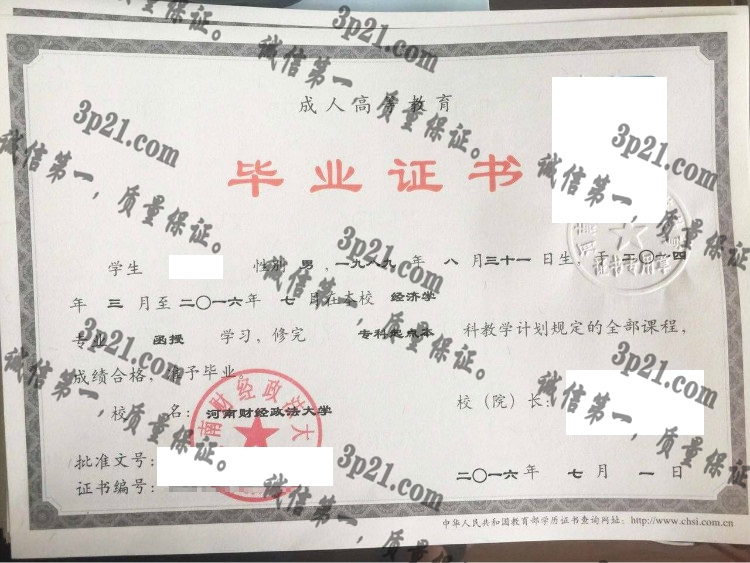 成人高等教育
毕业证书
学生 性别 男，一九八九 年 八 月三十一 日生，于 二〇一四
年 三 月至 二〇一六年 七 月在本校 经济学
专业 函授 学习，修完 专科起点本 科教学计划规定的全部课程，
成绩合格，准予毕业。
校 名：河南财经政法大学
校（院）长：
批准文号：
证书编号：
二〇一六 年 七 月 一 日
中华人民共和国教育部学历证书查询网址：http://www.chsi.com.cn
南财经政法大
证书专用章
3p21.com
诚信第一，质量保证。
3p21.com
诚信第一，质量保证。
3p21.com
诚信第一，质量保证。
3p21.com
诚信第一，质量保证。
3p21.com
诚信第一，质量保证。
3p21.com
诚信第一，质量保证。
3p21.com
诚信第一，质量保证。
3p21.com
诚信第一，质量保证。